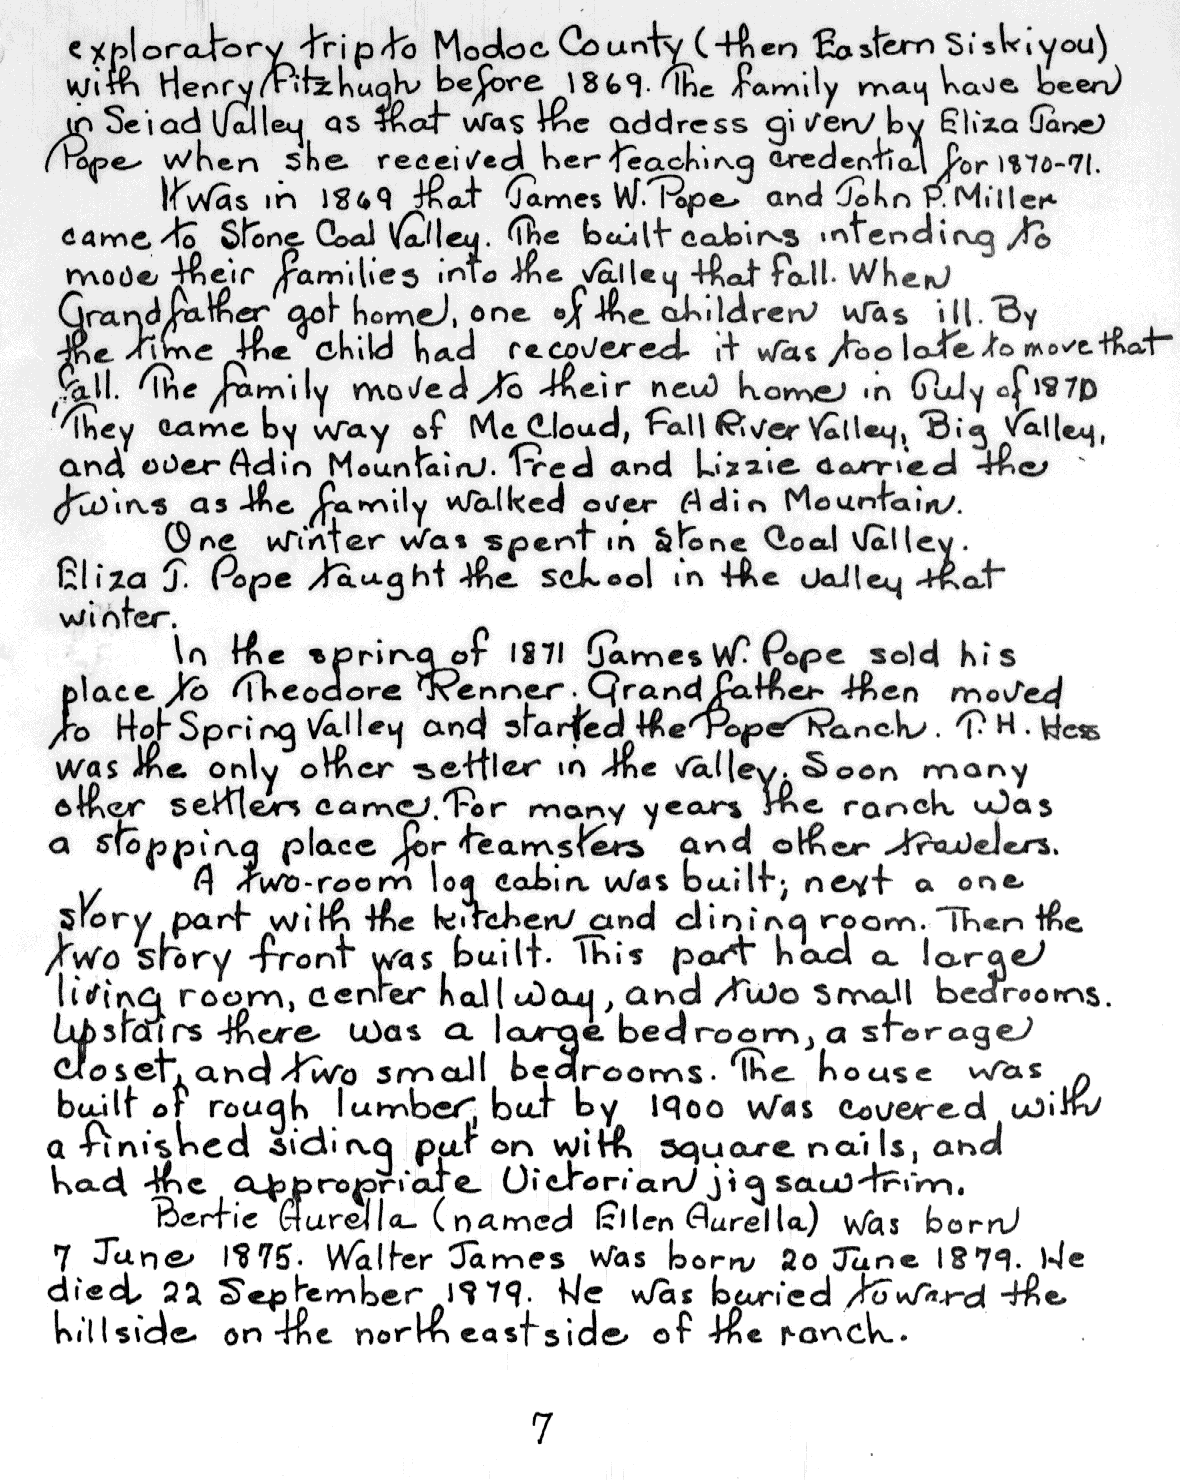 exploratory trip to Modoc County (then Eastern Siskiyou)
with Henry Fitzhugh before 1869. The family may have been
in Seiad Valley as that was the address given by Eliza Jane
Pope when she received her teaching credential for 1870-71.
It was in 1869 that James W. Pope and John P. Miller
came to Stone Coal Valley. The built cabins intending to
move their families into the valley that fall. When
Grandfather got home, one of the children was ill. By
the time the child had recovered it was too late to move that
fall. The family moved to their new home in July of 1870
They came by way of McCloud, Fall River Valley, Big Valley,
and over Adin Mountain. Fred and Lizzie carried the
twins as the family walked over Adin Mountain.
One winter was spent in Stone Coal Valley.
Eliza J. Pope taught the school in the valley that
winter.
In the spring of 1871 James W. Pope sold his
place to Theodore Renner. Grandfather then moved
to Hot Spring Valley and started the Pope Ranch. T. H. Hess
was the only other settler in the valley. Soon many
other settlers came. For many years the ranch was
a stopping place for teamsters and other travelers.
A two-room log cabin was built; next a one
story part with the kitchen and dining room. Then the
two story front was built. This part had a large
living room, center hallway, and two small bedrooms.
Upstairs there was a large bedroom, a storage
closet, and two small bedrooms. The house was
built of rough lumber, but by 1900 was covered with
a finished siding put on with square nails, and
had the appropriate Victorian jigsaw trim.
Bertie Aurella (named Ellen Aurella) was born
7 June 1875. Walter James was born 20 June 1879. He
died 22 September 1879. He was buried toward the
hillside on the northeast side of the ranch.
7